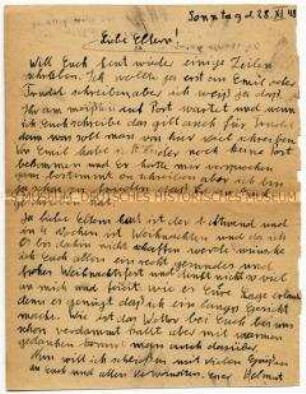 Sonntag d. 28. XI. 48
Liebe Eltern!
Will Euch heut wieder einige Zeilen
schreiben. Ich wollte ja erst an Emil oder
Trudel schreiben aber ich weiß ja daß
Ihr am meisten auf Post wartet und wenn
ich Euch schreibe das gilt auch für Trudel
denn was soll man von hier viel schreiben
Von Emil habe ich noch keine Post
bekommen und Er hatte mir versprochen
ganz bestimmt zu schreiben aber ich bin
ja schon zu frieden
Ja liebe Eltern heut ist der 1. Advent und
in 4 Wochen ist Weihnachten und da ich
es bis dahin nicht schaffen werde wünsche
ich Euch allen ein recht gesundes und
frohes Weihnachtsfest und denkt nicht so viel
an mich und feiert wie es Eure Lage erlaubt
denn es genügt daß ich ein langes Gesicht
mache. Wie ist das Wetter bei Euch bei uns
schon verdammt kalt aber mit warmen
gedanken kommt man auch darüber
Nun will ich schließen mit vielen Grüßen
an Euch und allen Verwandten. Euer Helmut
DEUTSCHES HISTORISCHES MUSEUM